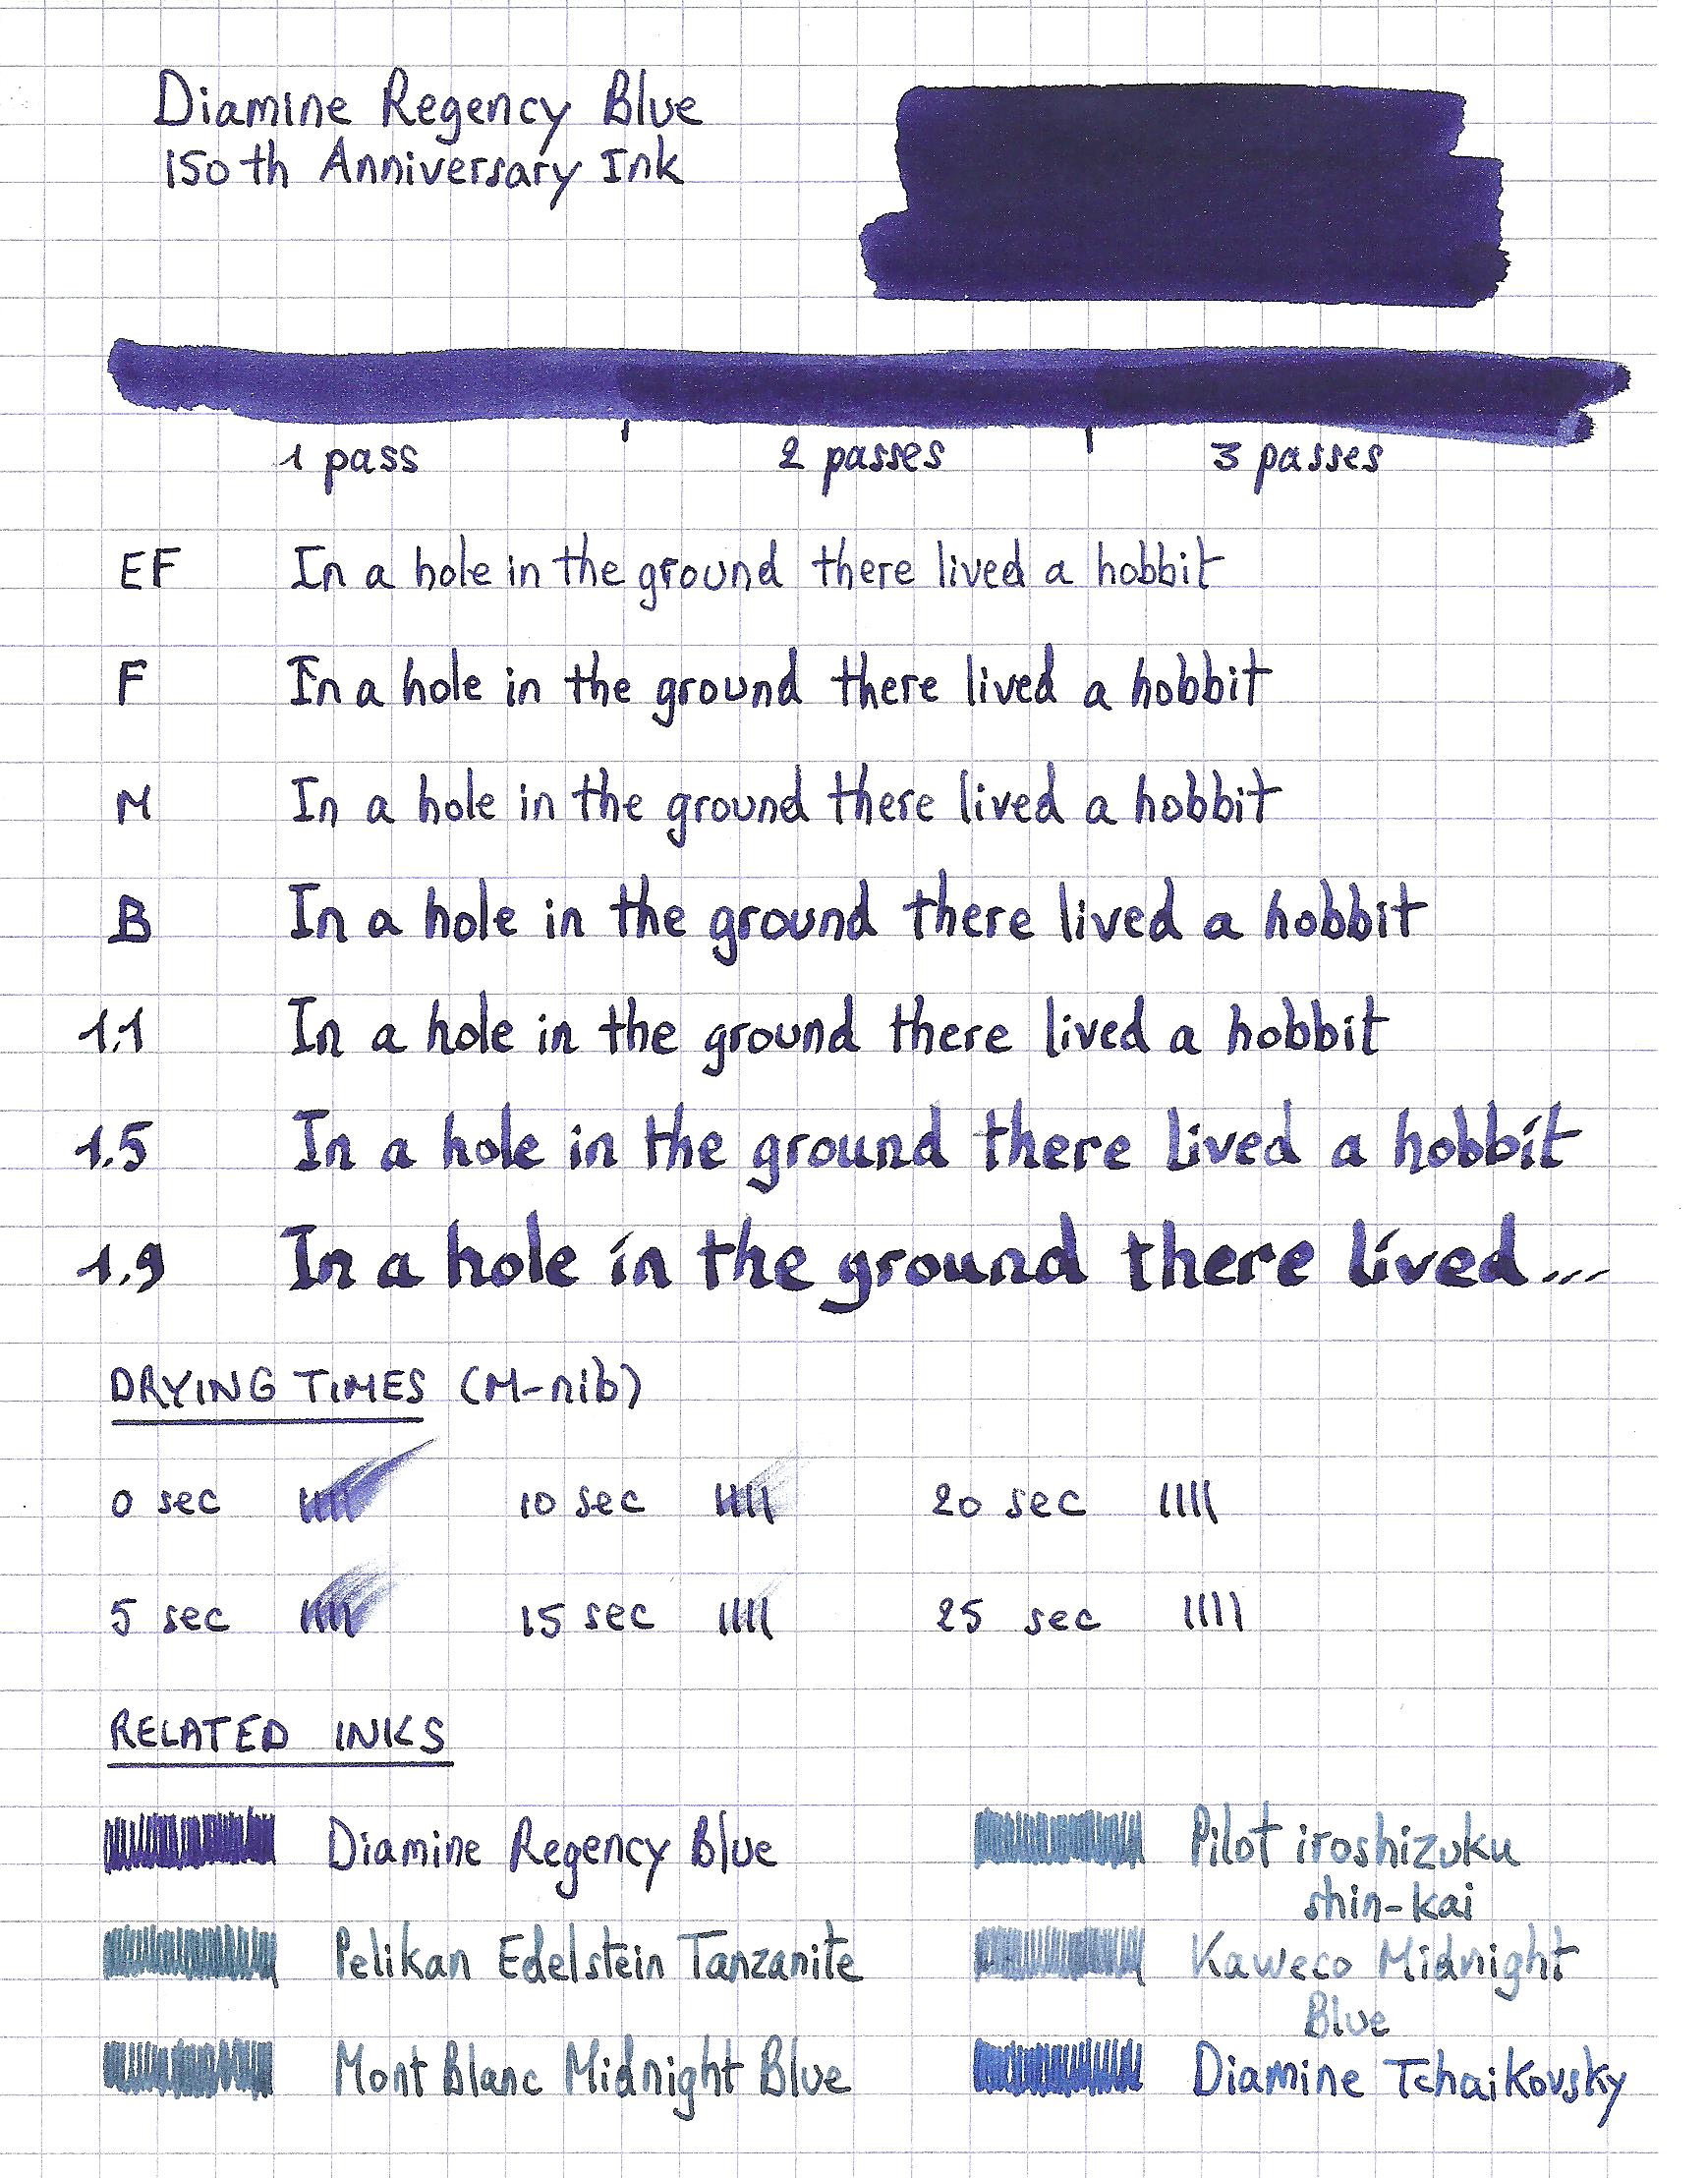 Diamine Regency Blue
150th Anniversary Ink
1 pass 2 passes 3 passes
EF In a hole in the ground there lived a hobbit
F In a hole in the ground there lived a hobbit
M In a hole in the ground there lived a hobbit
B In a hole in the ground there lived a hobbit
1.1 In a hole in the ground there lived a hobbit
1.5 In a hole in the ground there lived a hobbit
1.9 In a hole in the ground there lived...
DRYING TIMES (M-nib)
0 sec 10 sec 20 sec
5 sec 15 sec 25 sec
RELATED INKS
Diamine Regency Blue
Pelikan Edelstein Tanzanite
Mont Blanc Midnight Blue
Pilot iroshizuku
shin-kai
Kaweco Midnight
Blue
Diamine Tchaikovsky